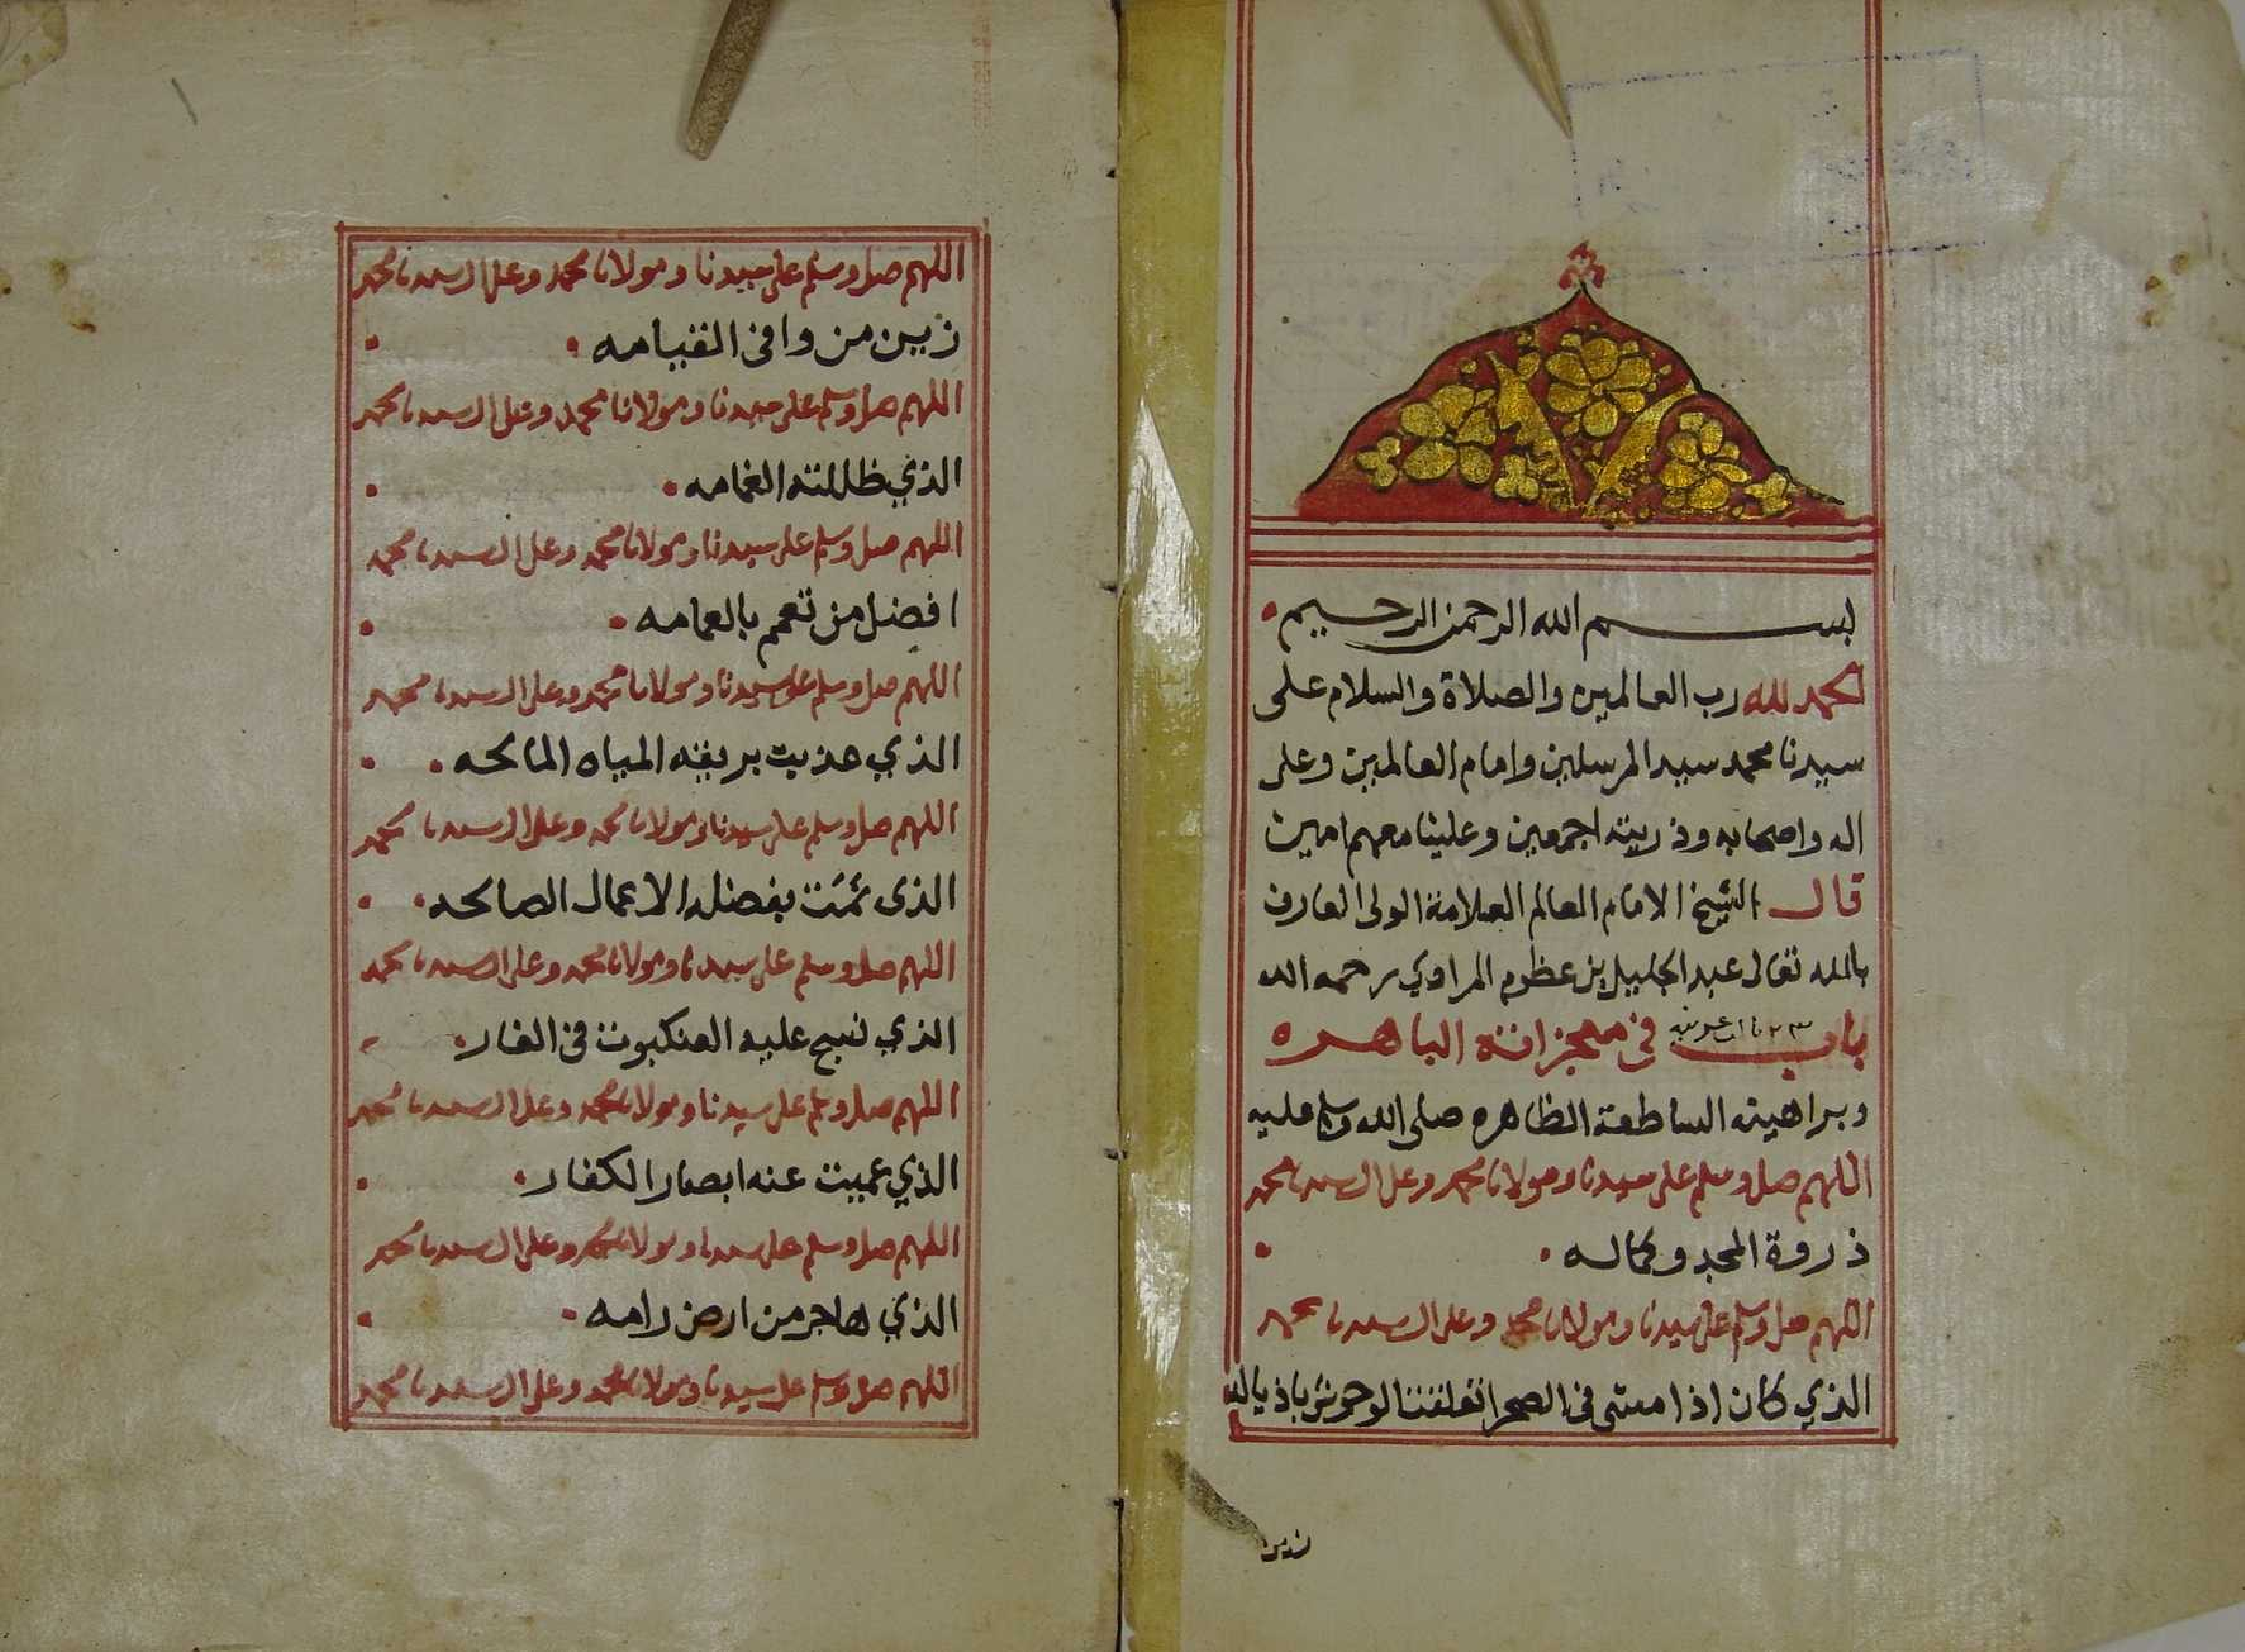 بسم الله الرحمن الرحيم
الحمد لله رب العالمين والصلاة والسلام على
سيدنا محمد سيد المرسلين وامام العالمين وعلى
اله واصحابه وذريته اجمعين وعلينا معهم امين
قال الشيخ الامام العالم العلامة الولى العارف
بالله تعالى عبد الجليل بن عظوم المرادي رحمه الله
باب فى معجزاته الباهره
وبراهينه الساطعة الظاهره صلى الله وسلم عليه
اللهم صل وسلم على سيدنا ومولانا محمد وعلى ال سيدنا محمد
ذروة المجد وكماله
اللهم صل وسلم على سيدنا ومولانا محمد وعلى ال سيدنا محمد
الذي كان اذا مشى فى الصحرا تعلقت الوحوش باذياله
زين
اللهم صل وسلم على سيدنا ومولانا محمد وعلى ال سيدنا محمد
زين من وافى القيامه
اللهم صل وسلم على سيدنا ومولانا محمد وعلى ال سيدنا محمد
الذي ظللته الغمامه
اللهم صل وسلم على سيدنا ومولانا محمد وعلى ال سيدنا محمد
افضل من تعمم بالعمامه
اللهم صل وسلم على سيدنا ومولانا محمد وعلى ال سيدنا محمد
الذي عذبت بريقه المياه المالحه
اللهم صل وسلم على سيدنا ومولانا محمد وعلى ال سيدنا محمد
الذى نمت بفضله الاعمال الصالحه
اللهم صل وسلم على سيدنا ومولانا محمد وعلى ال سيدنا محمد
الذي نسج عليه العنكبوت فى الغار
اللهم صل وسلم على سيدنا ومولانا محمد وعلى ال سيدنا محمد
الذي عميت عنه ابصار الكفار
اللهم صل وسلم على سيدنا ومولانا محمد وعلى ال سيدنا محمد
الذي هاجر من ارض رامه
اللهم صل وسلم على سيدنا ومولانا محمد وعلى ال سيدنا محمد